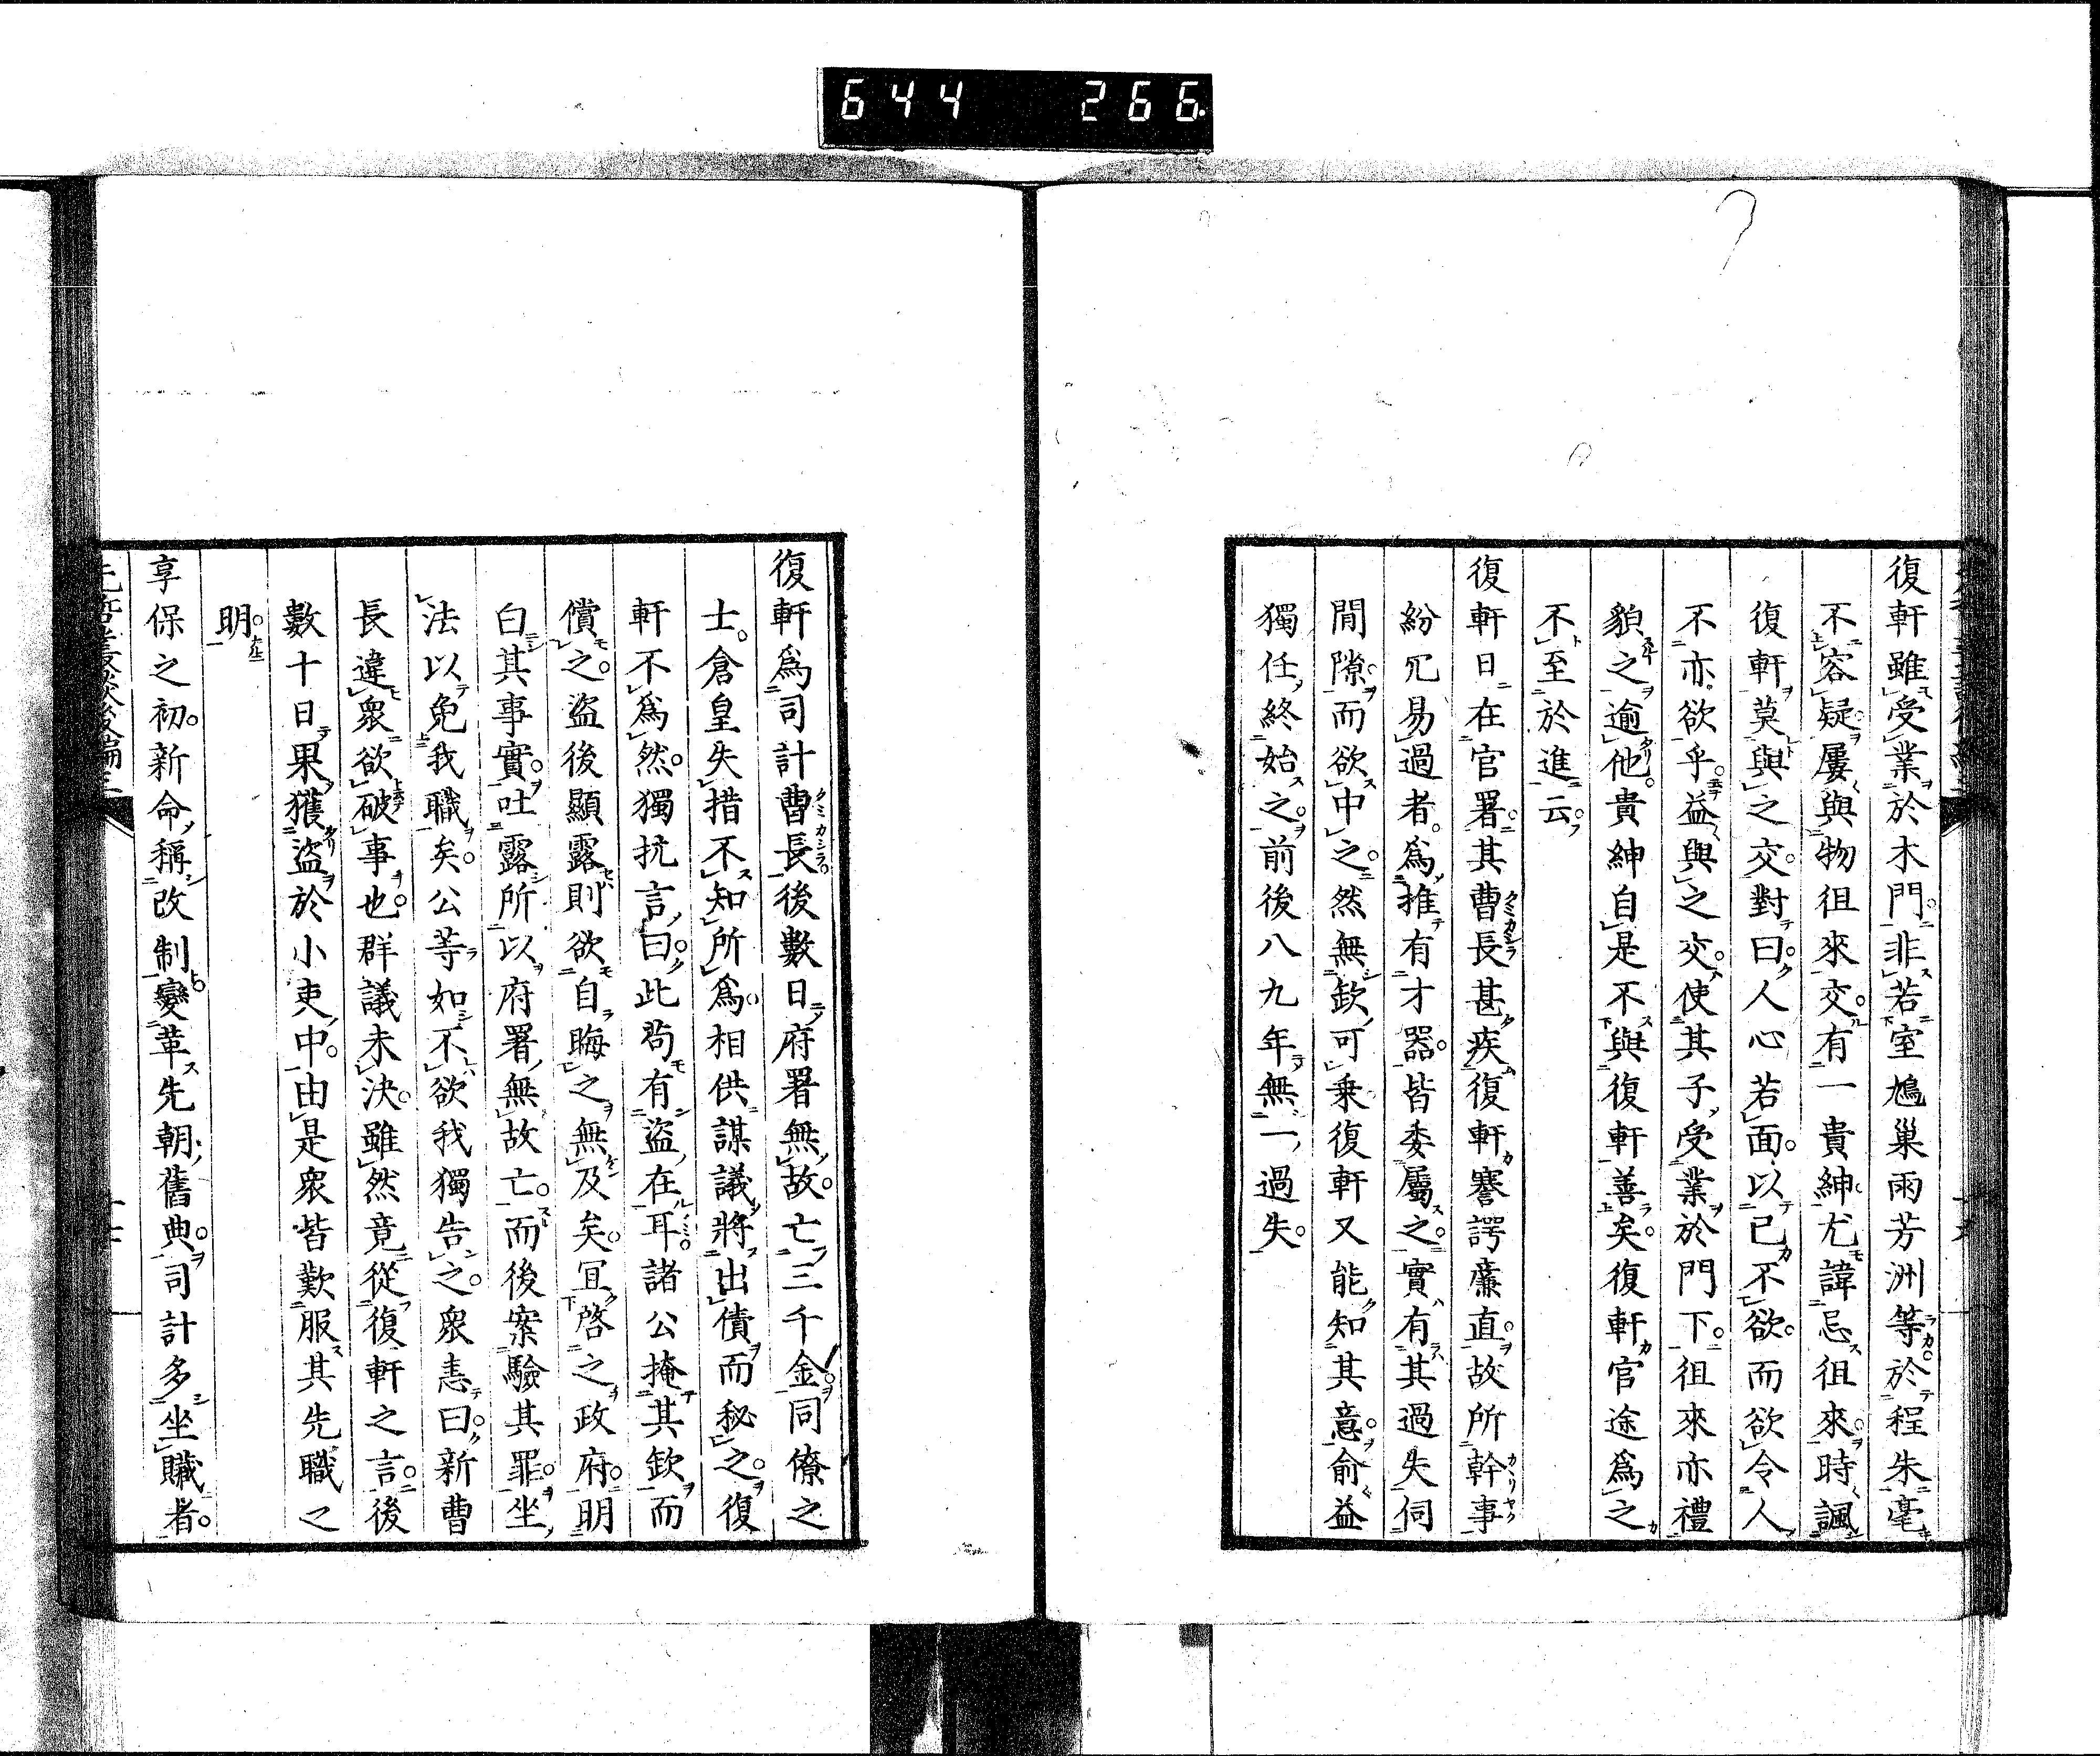 644 266
復軒雖受業於木門。非若室鳩巢雨芳洲等。於程朱毫
不容疑。屢與物徂來交。有一貴紳尤諱忌徂來。時諷
復軒莫與之交。對曰。人心若面。以己不欲。而欲令人
不亦欲乎。益與之交。使其子受業於門下。徂來亦禮
貌之逾他。貴紳自是不與復軒善矣。復軒官途爲之
不至於進云。
復軒日在官署。其曹長甚疾復軒謇諤廉直。故所幹事
紛冗易過者。爲推有才器。皆委屬之。實有其過失。伺
間隙而欲中之。然無欽可乘。復軒又能知其意。俞益
獨任終始之。前後八九年。無一過失。
復軒爲司計曹長。後數日。府署無故。亡三千金。同僚之
士。倉皇失措。不知所爲。相供謀議。將出債而秘之。復
軒不爲然。獨抗言曰。此苟有盜在耳。諸公掩其欽而
償之。盜後顯露則欲自晦之無及矣。冝啓之政府。明
白其事實。吐露所以府署無故亡。而後案驗其罪。坐
法以免我職矣。公等如不欲我獨告之。衆恚曰。新曹
長違衆欲破事也。群議未決。雖然竟從復軒之言。後
數十日。果獲盜於小吏中。由是衆皆歎服其先職之
明。
享保之初。新命稱改制。變革先朝舊典。司計多坐贓者。